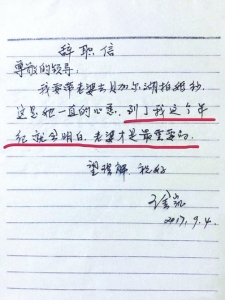 辞职信
尊敬的领导:
我要带老婆去贝加尔湖拍婚纱,
这是她一直的心愿。到了我这个年
纪就会明白,老婆才是最重要的。
望理解 祝好
2017.9.4.